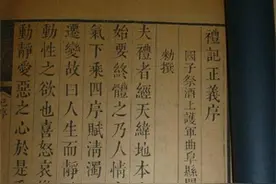 禮記正義序
國子祭酒上護軍曲阜縣開
勑撰
夫禮者經天緯地本
始要終體之乃人情
氣下乗四序賦清濁
遷變故曰人生而靜
動性之欲也喜怒哀
動靜愛惡之心於是